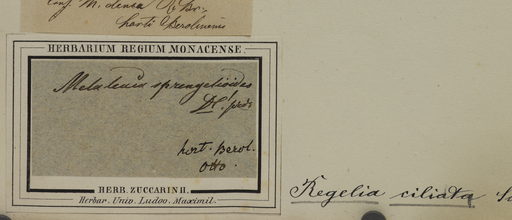 conf. M. densa R. Br.
horti Berolinensis
HERBARIUM REGIUM MONACENSE
Melaleuca sprengelioides
DC! prdr
hort. Berol.
Otto.
HERB. ZUCCARINII.
Herbar. Univ. Ludov. Maximil.
Regelia ciliata